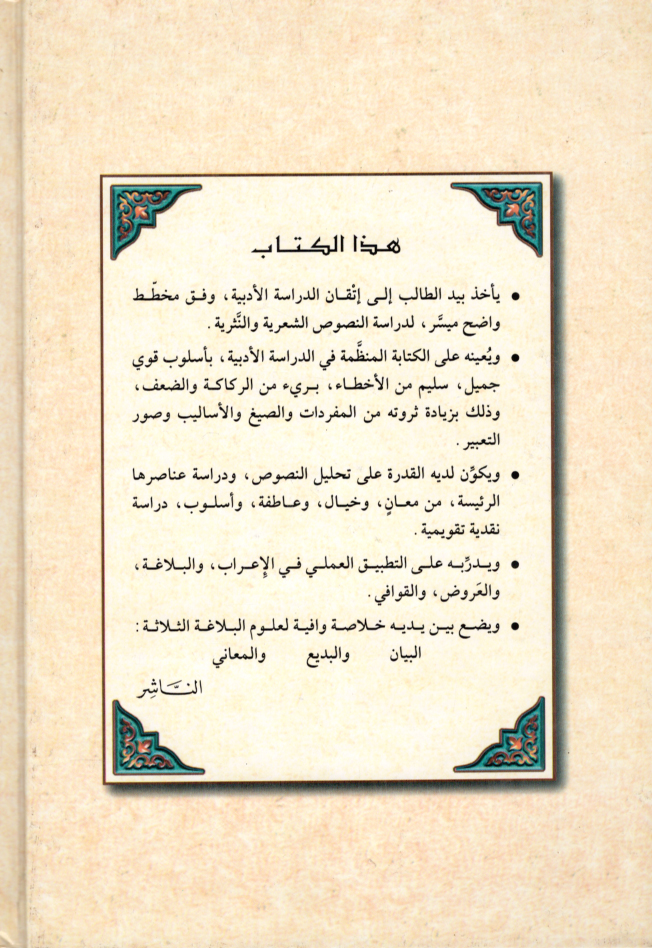 هذا الكتاب
• يأخذ بيد الطالب إلى إتْقان الدراسة الأدبية، وفق مخطّط
واضح ميسَّر، لدراسة النصوص الشعرية والنَّثرية.
• ويُعينه على الكتابة المنظَّمة في الدراسة الأدبية، بأسلوب قوي
جميل، سليم من الأخطاء، بريء من الركاكة والضعف،
وذلك بزيادة ثروته من المفردات والصيغ والأساليب وصور
التعبير.
• ويكوِّن لديه القدرة على تحليل النصوص، ودراسة عناصرها
الرئيسة، من معانٍ، وخيال، وعاطفة، وأسلوب، دراسة
نقدية تقويمية.
• ويدرِّبه على التطبيق العملي في الإعراب، والبلاغة،
والعَروض، والقوافي.
• ويضع بين يديه خلاصة وافية لعلوم البلاغة الثلاثة:
البيان والبديع والمعاني
النَّاشِر